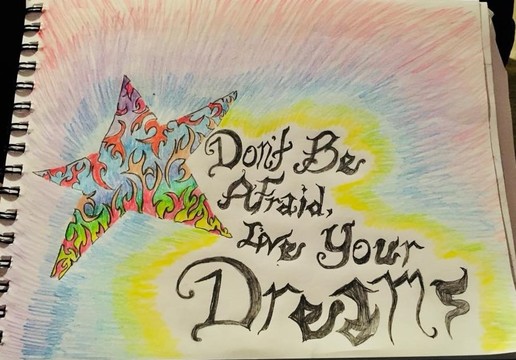 Don't Be
Afraid,
Live Your
Dreams